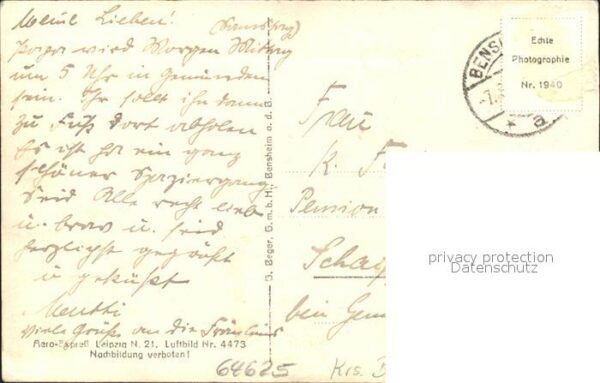 Meine Lieben! (Samstag)
Papa wird Morgen Mittag
um 5 Uhr in Gemünden
sein. Ihr sollt ihn dann
zu Fuß dort abholen
Es ist ja ein ganz
schöner Spaziergang
Seid Alle recht lieb
u. brav u. seid
herzlichst gegrüßt
u geküßt
Mutti
Viele Grüße an die Fräuleins
Aero-Expreß Leipzig N. 21. Luftbild Nr. 4473
Nachbildung verboten!
G. Beger, G.m.b.H., Bensheim a. d. B.
BENSH
-7.
Echte
Photographie
Nr. 1940
Frau
K. F
Pension
Schaip
bein Gem
privacy protection
Datenschutz
64625
Krs. B